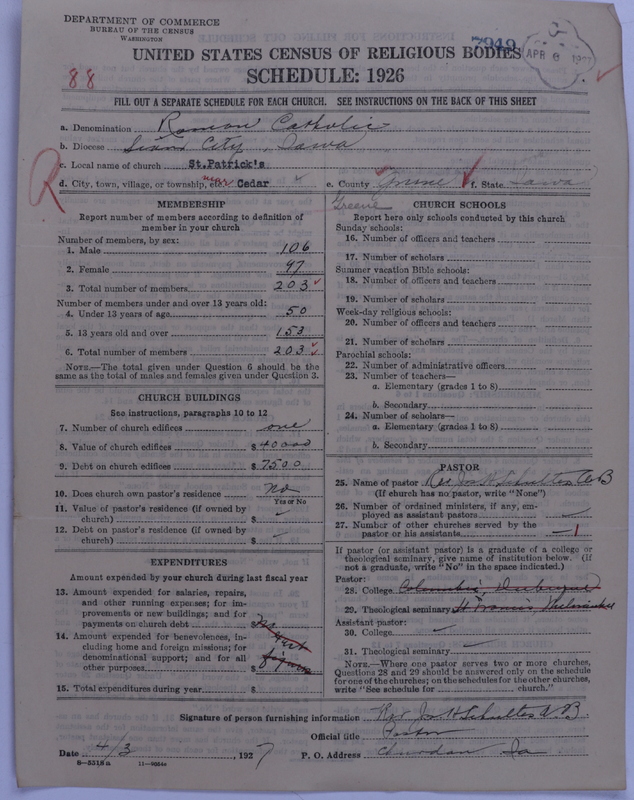 DEPARTMENT OF COMMERCE
BUREAU OF THE CENSUS
WASHINGTON
7949
APR 6 1927
UNITED STATES CENSUS OF RELIGIOUS BODIES
88
SCHEDULE: 1926
FILL OUT A SEPARATE SCHEDULE FOR EACH CHURCH. SEE INSTRUCTIONS ON THE BACK OF THIS SHEET
a. Denomination Roman Catholic
b. Diocese Sioux City, Iowa
c. Local name of church St.Patrick's
R
d. City, town, village, or township, etc. near Cedar
e. County Greene
f. State Iowa
Greene
MEMBERSHIP
Report number of members according to definition of
member in your church
Number of members, by sex:
1. Male 106
2. Female 97
3. Total number of members 203
Number of members under and over 13 years old:
4. Under 13 years of age 50
5. 13 years old and over 153
6. Total number of members 203
NOTE.—The total given under Question 6 should be the
same as the total of males and females given under Question 3.
CHURCH BUILDINGS
See instructions, paragraphs 10 to 12
7. Number of church edifices one
8. Value of church edifices $ 40000
9. Debt on church edifices $ 7500
10. Does church own pastor's residence no
Yes or No
11. Value of pastor's residence (if owned by
church) $
12. Debt on pastor's residence (if owned by
church) $
EXPENDITURES
Amount expended by your church during last fiscal year
13. Amount expended for salaries, repairs,
and other running expenses; for im-
provements or new buildings; and for
payments on church debt $
14. Amount expended for benevolences, in-
cluding home and foreign missions; for
denominational support; and for all
other purposes $ figures
15. Total expenditures during year $
CHURCH SCHOOLS
Report here only schools conducted by this church
Sunday schools:
16. Number of officers and teachers
17. Number of scholars
Summer vacation Bible schools:
18. Number of officers and teachers
19. Number of scholars
Week-day religious schools:
20. Number of officers and teachers
21. Number of scholars
Parochial schools:
22. Number of administrative officers
23. Number of teachers—
a. Elementary (grades 1 to 8)
b. Secondary
24. Number of scholars—
a. Elementary (grades 1 to 8)
b. Secondary
PASTOR
25. Name of pastor Rev Jos H Schultes A B
(If church has no pastor, write "None")
26. Number of ordained ministers, if any, em-
ployed as assistant pastors
27. Number of other churches served by the
pastor or his assistants 1
If pastor (or assistant pastor) is a graduate of a college or
theological seminary, give name of institution below. (If
not a graduate, write "No" in the space indicated.)
Pastor:
28. College Columbia, Dubuque
29. Theological seminary St Francis Milwaukee
Assistant pastor:
30. College
31. Theological seminary
NOTE.—Where one pastor serves two or more churches,
Questions 28 and 29 should be answered only on the schedule
for one of the churches; on the schedules for the other churches,
write "See schedule for church."
Signature of person furnishing information Rev Jos H Schultes A.B
Official title Pastor
Date 4/3, 1927
P. O. Address Churdan Ia
8—5518a 11—9054